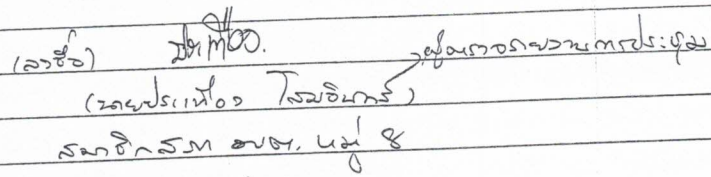 (ลงชื่อ) ประเทือง. ผู้ตรวจรายงานการประชุม
(นายประเทือง โสมอินทร์)
สมาชิกสภา อบต. หมู่ 8